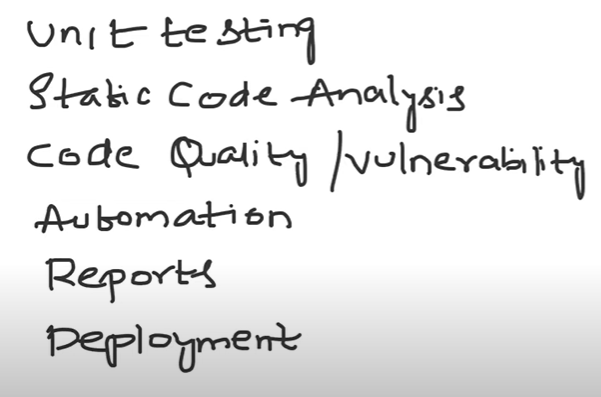 Unit testing
Static Code Analysis
Code Quality /vulnerability
Automation
Reports
Deployment